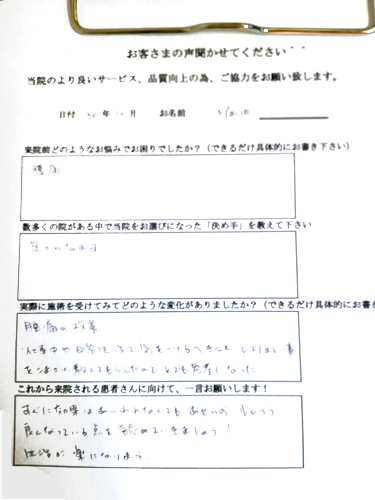 お客さまの声聞かせてください^^
当院のより良いサービス、品質向上の為、ご協力をお願い致します。
日付 年 月 お名前
来院前どのようなお悩みでお困りでしたか?(できるだけ具体的にお書き下さい)
腰痛
数多くの院がある中で当院をお選びになった「決め手」を教えて下さい
実際に施術を受けてみてどのような変化がありましたか?(できるだけ具体的にお書き
腰痛の改善
仕事中や日常生活で気をつけるべきこと
教えてもらえたので とても参考になった
これから来院される患者さんに向けて、一言お願いします!
すぐに効果はあらわれなくても あせらず 少しずつ
良くなっている点を認めていきましょう!
生活が楽になりますよう